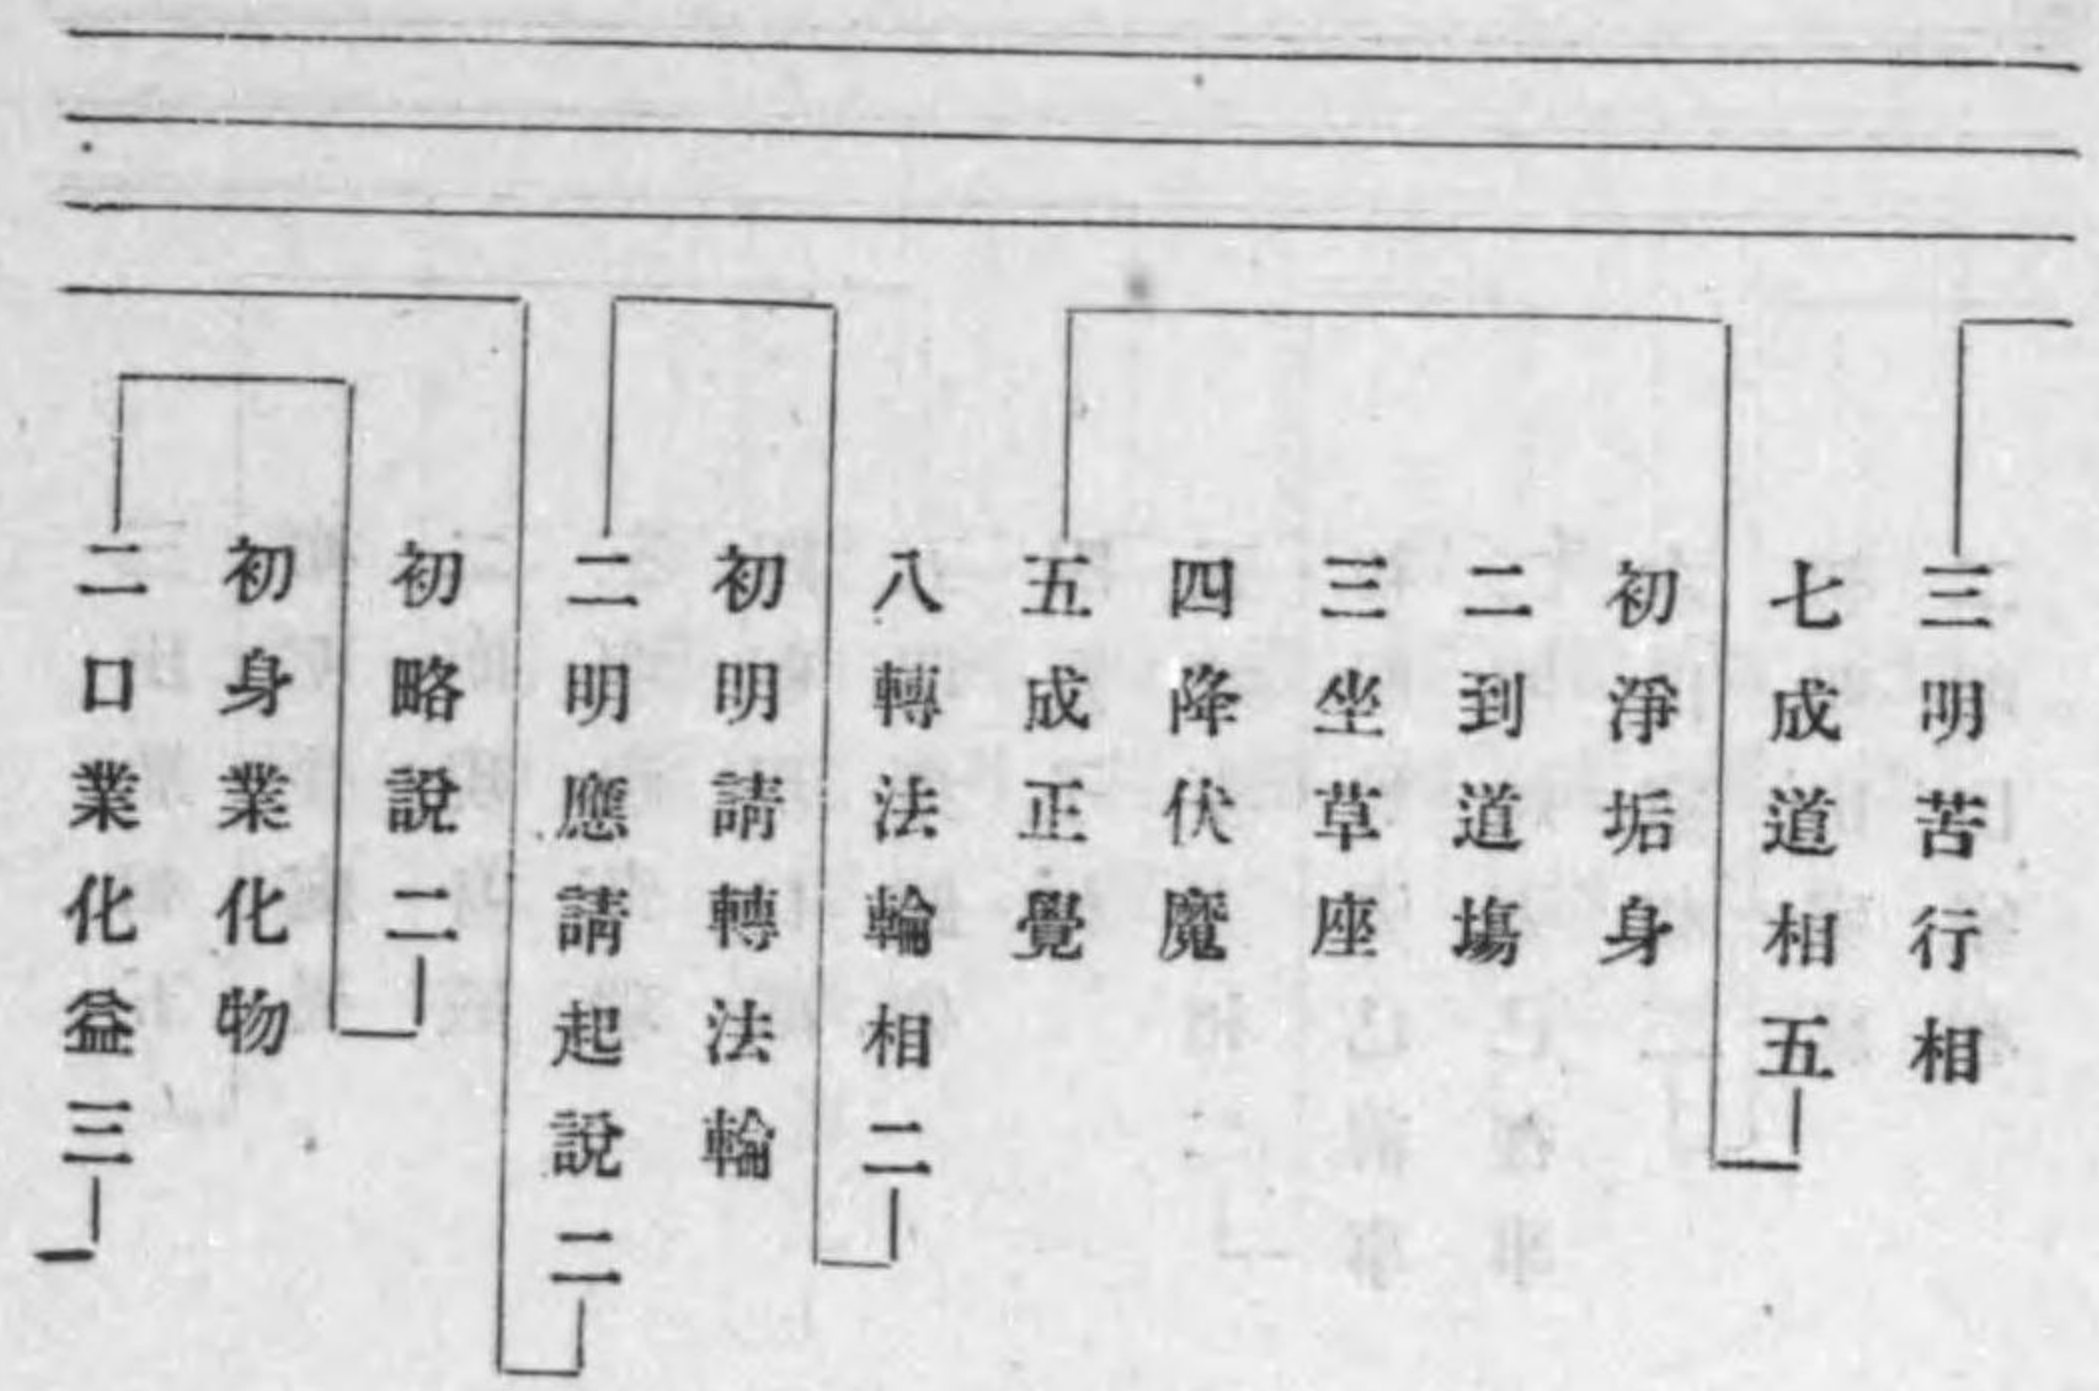 三明苦行相
七成道相五
初淨垢身
二到道塲
三坐草座
四降伏魔
五成正覺
八轉法輪相二
初明請轉法輪
二明應請起說二
初略說二
初身業化物
二口業化益三